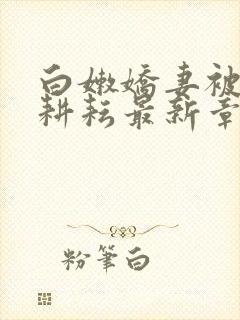 白嫩嬌妻被
耕耘最新章
粉筆白